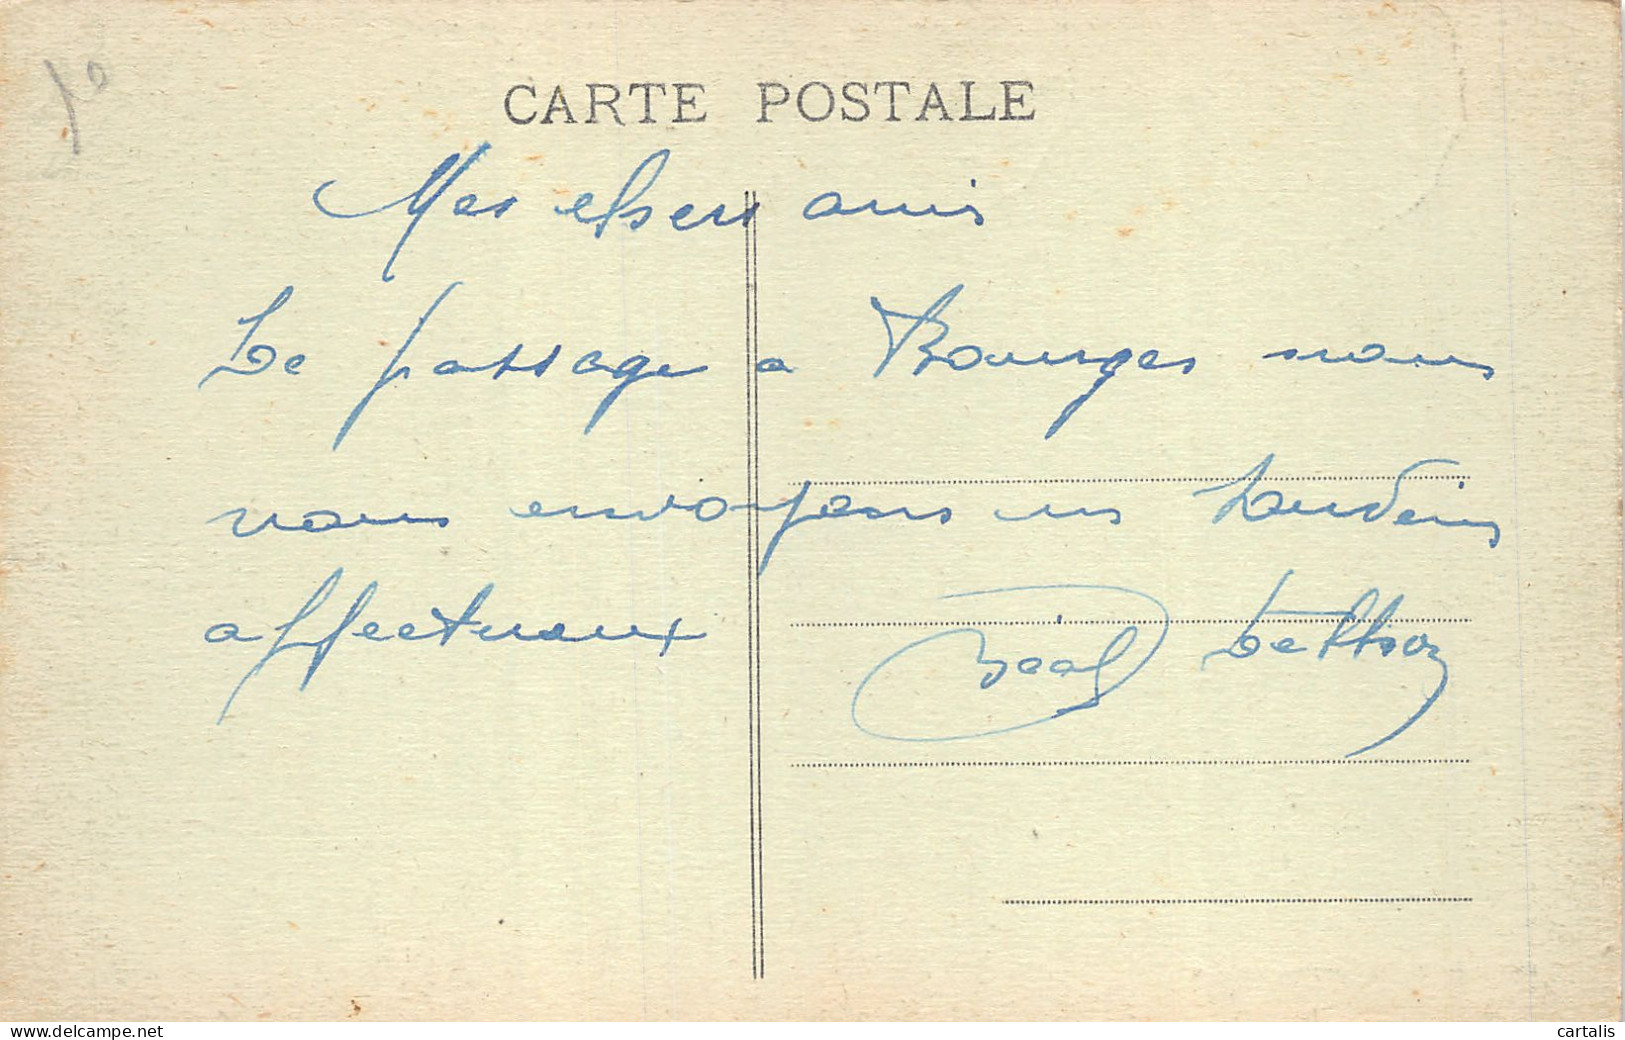 CARTE POSTALE
Mes chers amis
De passage a Bourges nous
vous envoyons un souvenir
affectueux
www.delcampe.net
cartalis